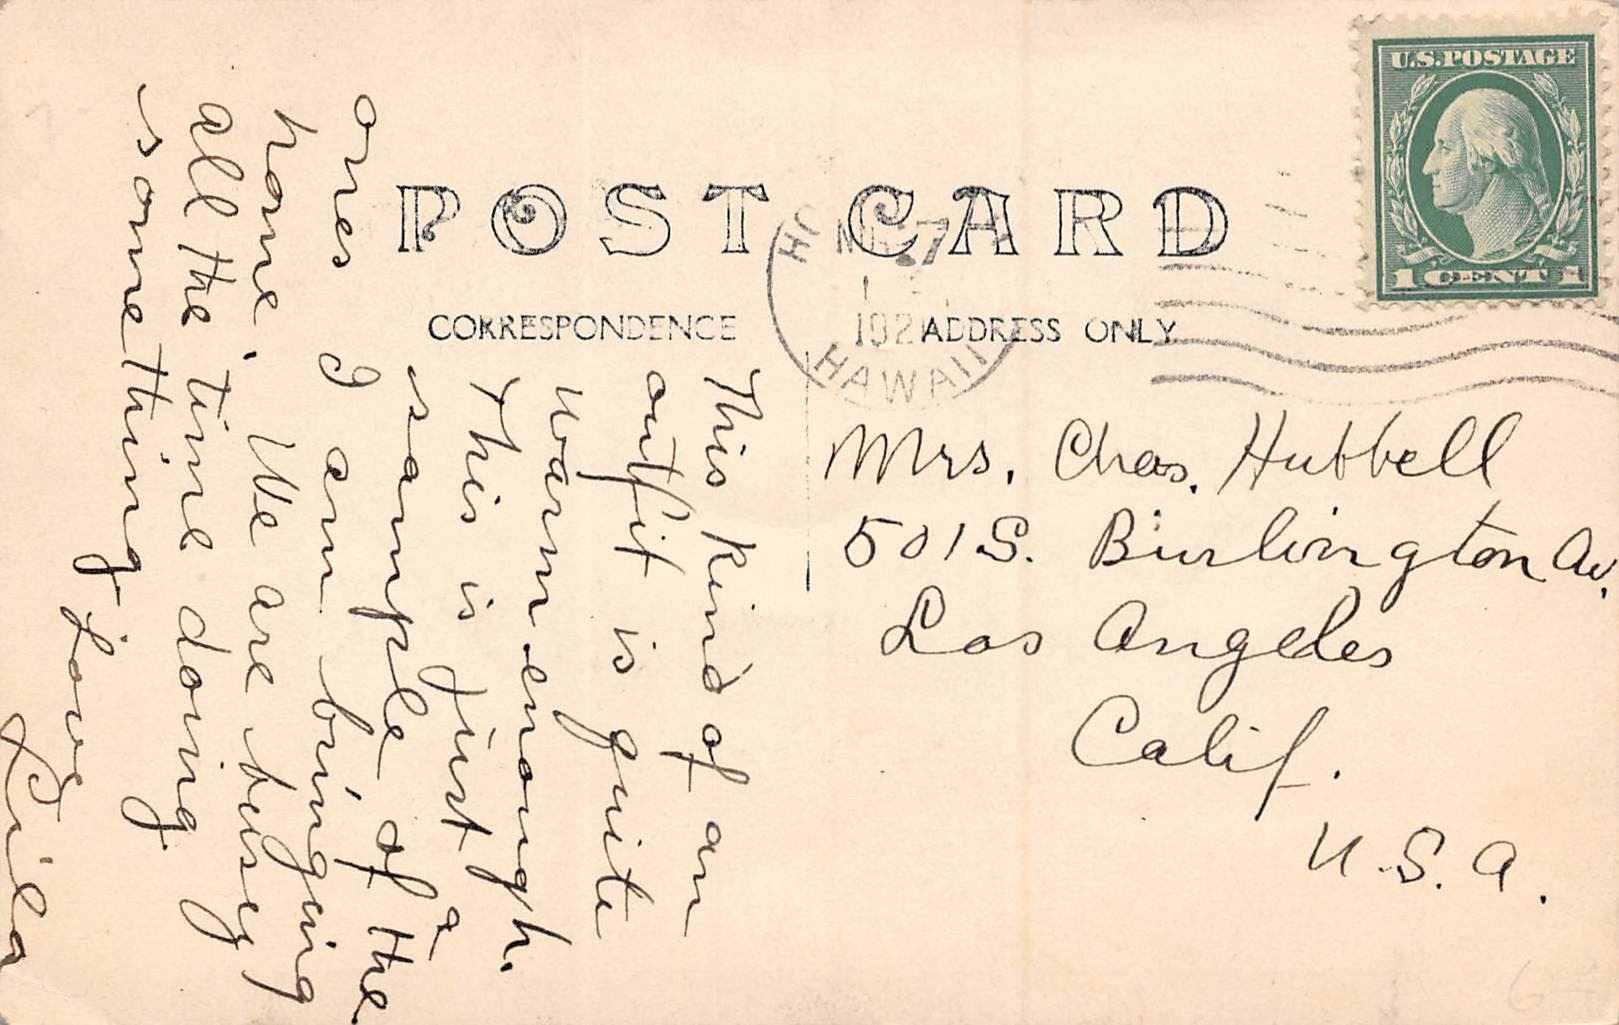 POST CARD
CORRESPONDENCE
ADDRESS ONLY
U.S. POSTAGE
1 CENT 1
7
192
HAWAII
This kind of an
outfit is quite
warm enough.
This is just a
sample of the
ones I am bringing
home. We are busy
all the time doing
something
Love
Lila
Mrs. Chas. Hubbell
501 S. Burlington Av.
Los Angeles
Calif.
U.S.A.